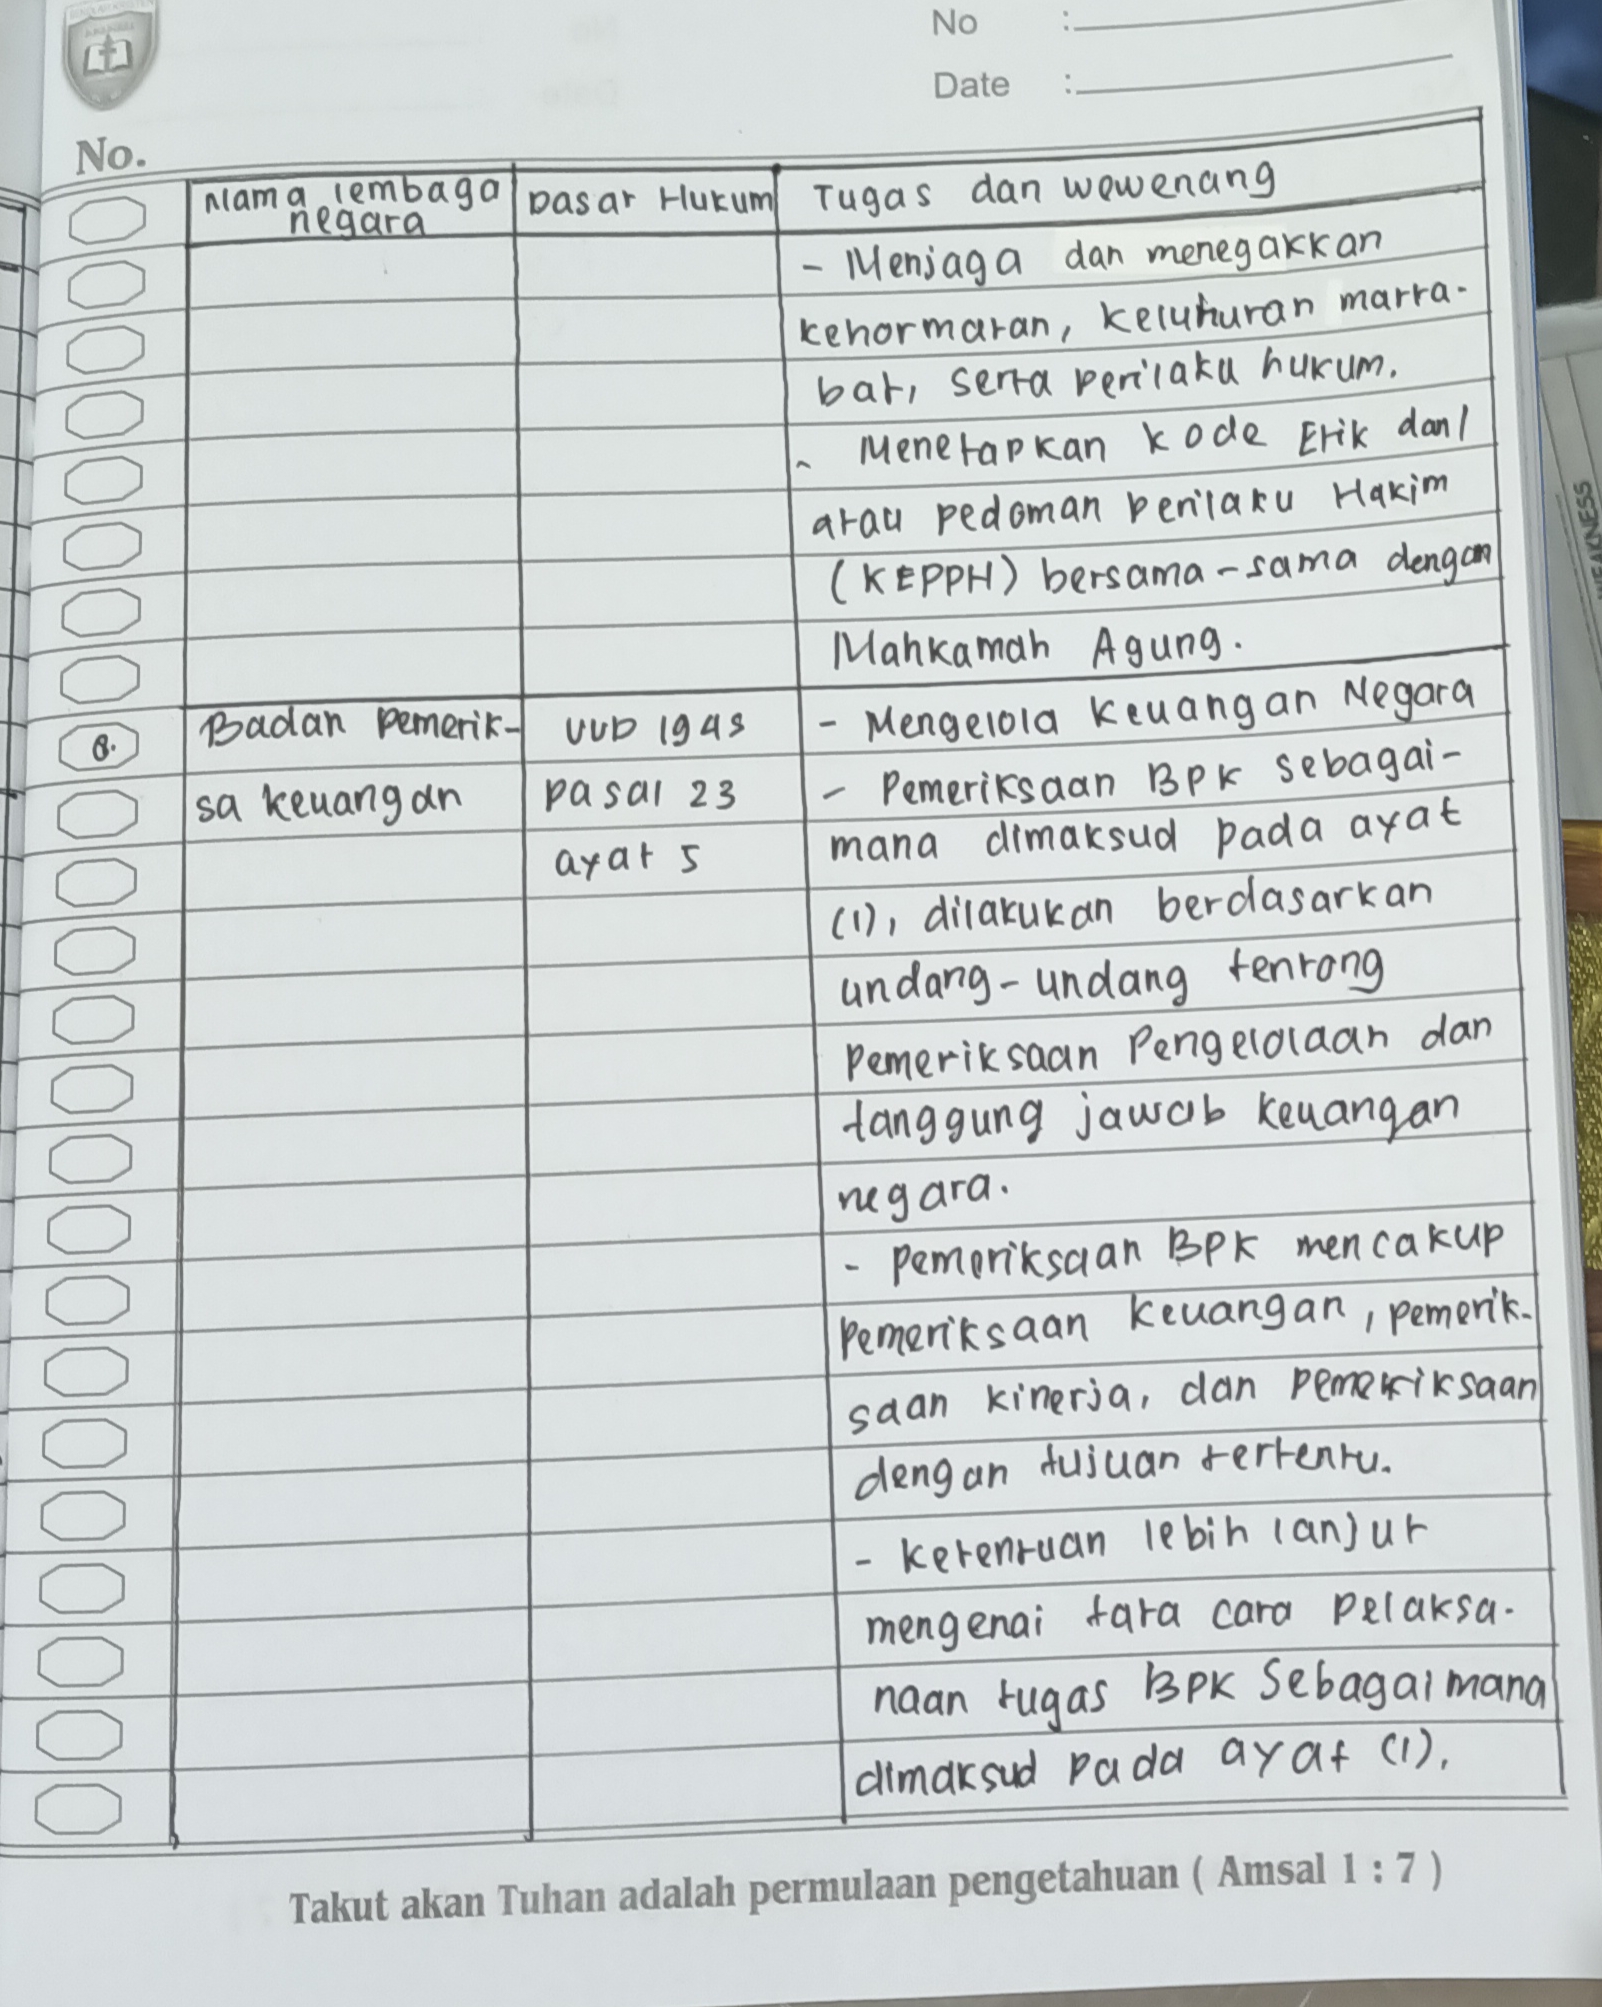 No :
Date :
No.
Nama lembaga negara Dasar Hukum Tugas dan wewenang
- Menjaga dan menegakkan
kehormatan, keluhuran marta-
bat, serta perilaku hukum.
- Menetapkan kode Etik dan/
atau pedoman perilaku Hakim
(KEPPH) bersama-sama dengan
Mahkamah Agung.
8. Badan pemerik- UUD 1945 - Mengelola keuangan Negara
sa keuangan pasal 23 - Pemeriksaan BPK sebagai-
ayat 5 mana dimaksud pada ayat
(1), dilakukan berdasarkan
undang-undang tentang
pemeriksaan Pengelolaan dan
tanggung jawab keuangan
negara.
- pemeriksaan BPK mencakup
pemeriksaan keuangan, pemerik-
saan kinerja, dan pemeriksaan
dengan tujuan tertentu.
- ketentuan lebih lanjut
mengenai tata cara pelaksa-
naan tugas BPK Sebagaimana
dimaksud pada ayat (1).
Takut akan Tuhan adalah permulaan pengetahuan ( Amsal 1 : 7 )